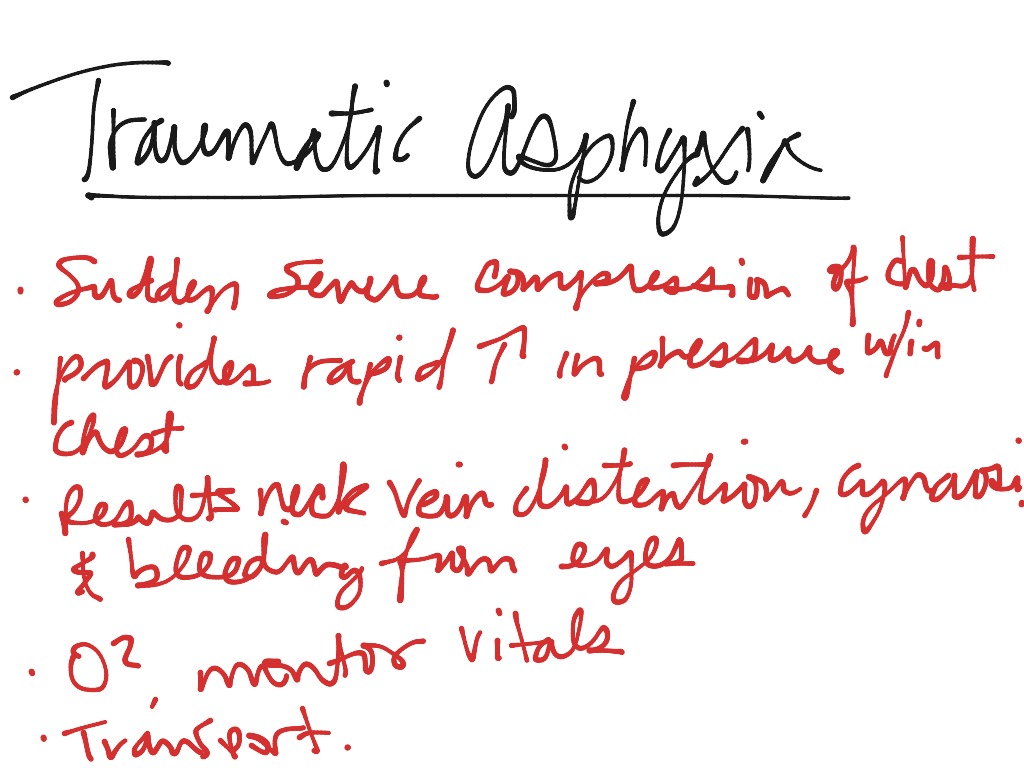 Traumatic Asphyxia
• Sudden severe compression of chest
• provides rapid ↑ in pressure w/in
chest
• Results neck vein distention, cynaosi
& bleeding from eyes
• O², monitor vitals
• Transport.